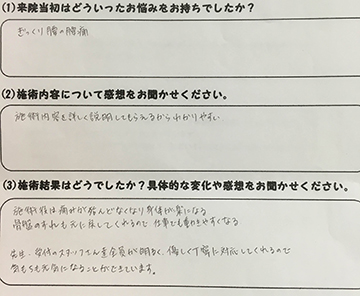 (1)来院当初はどういったお悩みをお持ちでしたか？
ぎっくり腰の腰痛
(2)施術内容について感想をお聞かせください。
施術内容を詳しく説明してもらえるからわかりやすい
(3)施術結果はどうでしたか？具体的な変化や感想をお聞かせください。
施術後は痛みが殆んどなくなり身体が楽になる
骨盤のずれも元に戻してくれるので仕事でも動きやすくなる
先生、受付のスタッフさん達全員が明るく、優しく丁寧に対応してくれるので
気もちも元気になることができています。